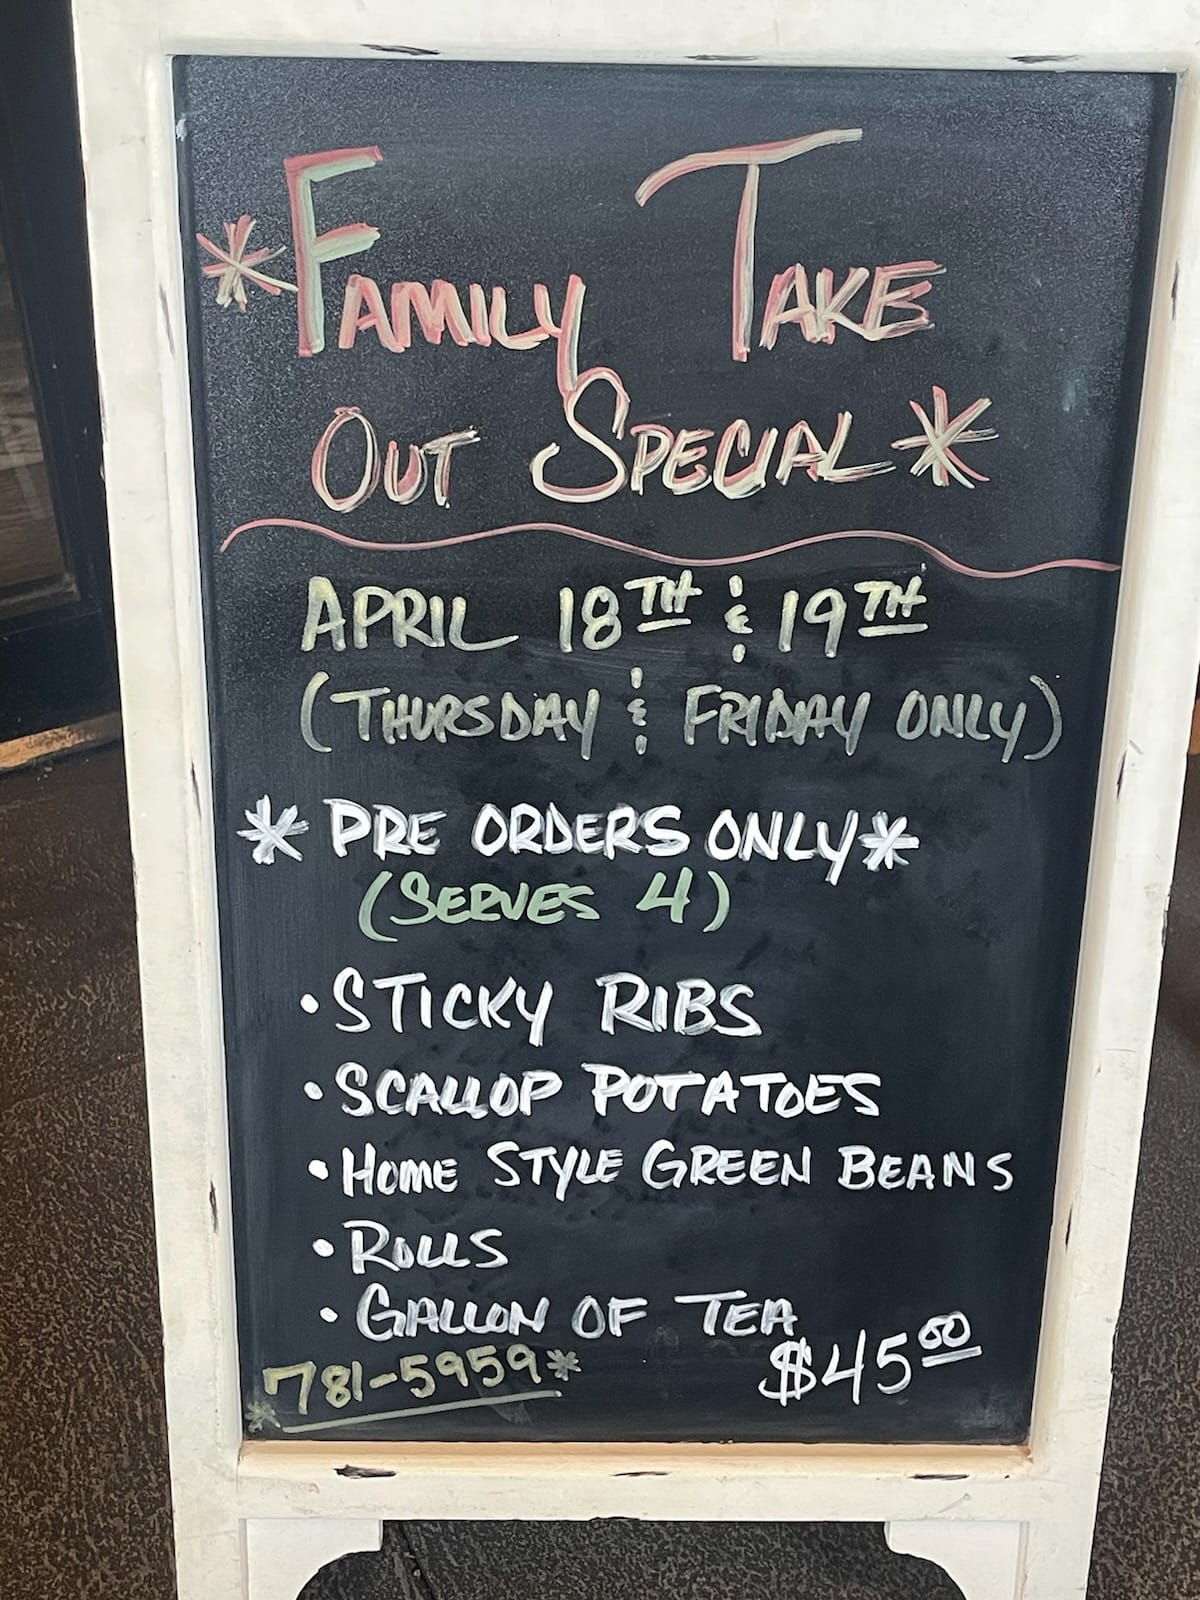 *FAMILY TAKE
OUT SPECIAL*
APRIL 18TH & 19TH
(THURSDAY & FRIDAY ONLY)
* PRE ORDERS ONLY*
(SERVES 4)
• STICKY RIBS
• SCALLOP POTATOES
• HOME STYLE GREEN BEANS
• ROLLS
• GALLON OF TEA
*781-5959* $45.00